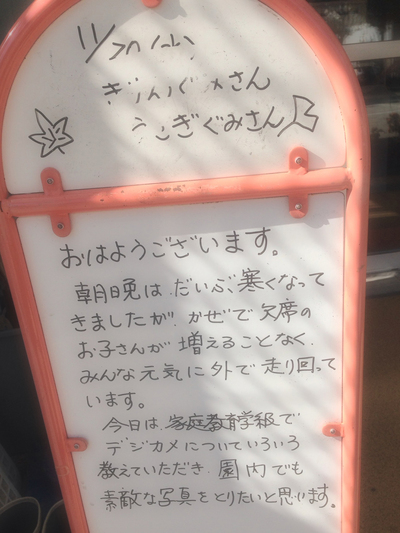 11/20(火)
ぎんぐみさん
うさぎぐみさん
おはようございます。
朝晩は だいぶ寒くなって
きましたが、かぜで欠席の
お子さんが 増えることなく、
みんな元気に外で走り回って
います。
今日は、家庭教育学級で
デジカメについていろいろ
教えていただき 園内でも
素敵な写真をとりたいと思います。